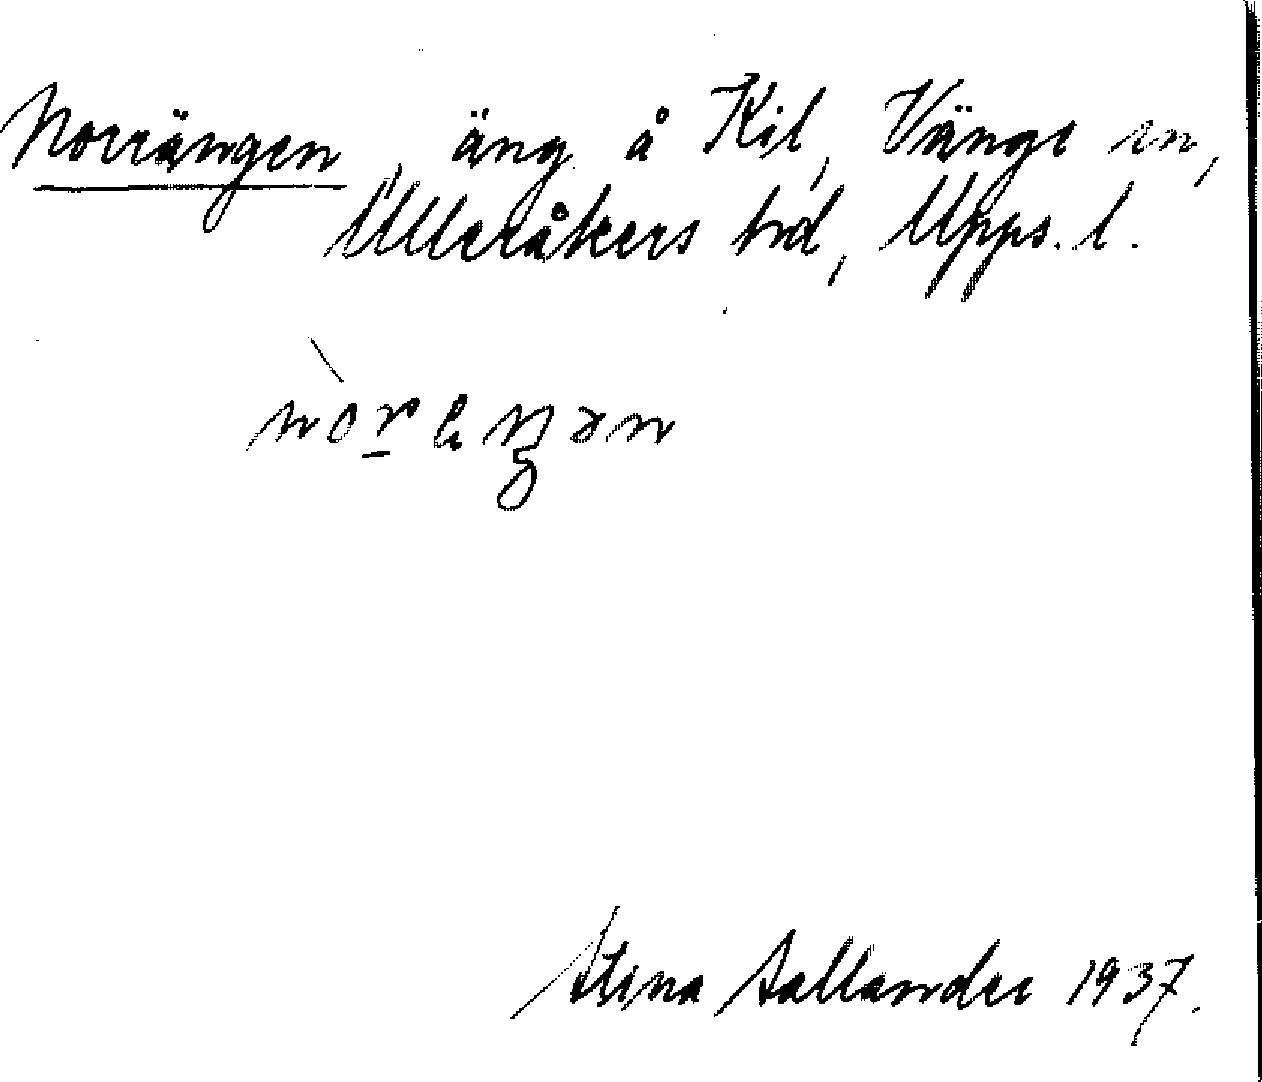 Norrängen, äng å Kil, Vänge sn,
Ulleråkers hd, Upps. l.
Stina Sallander 1937.